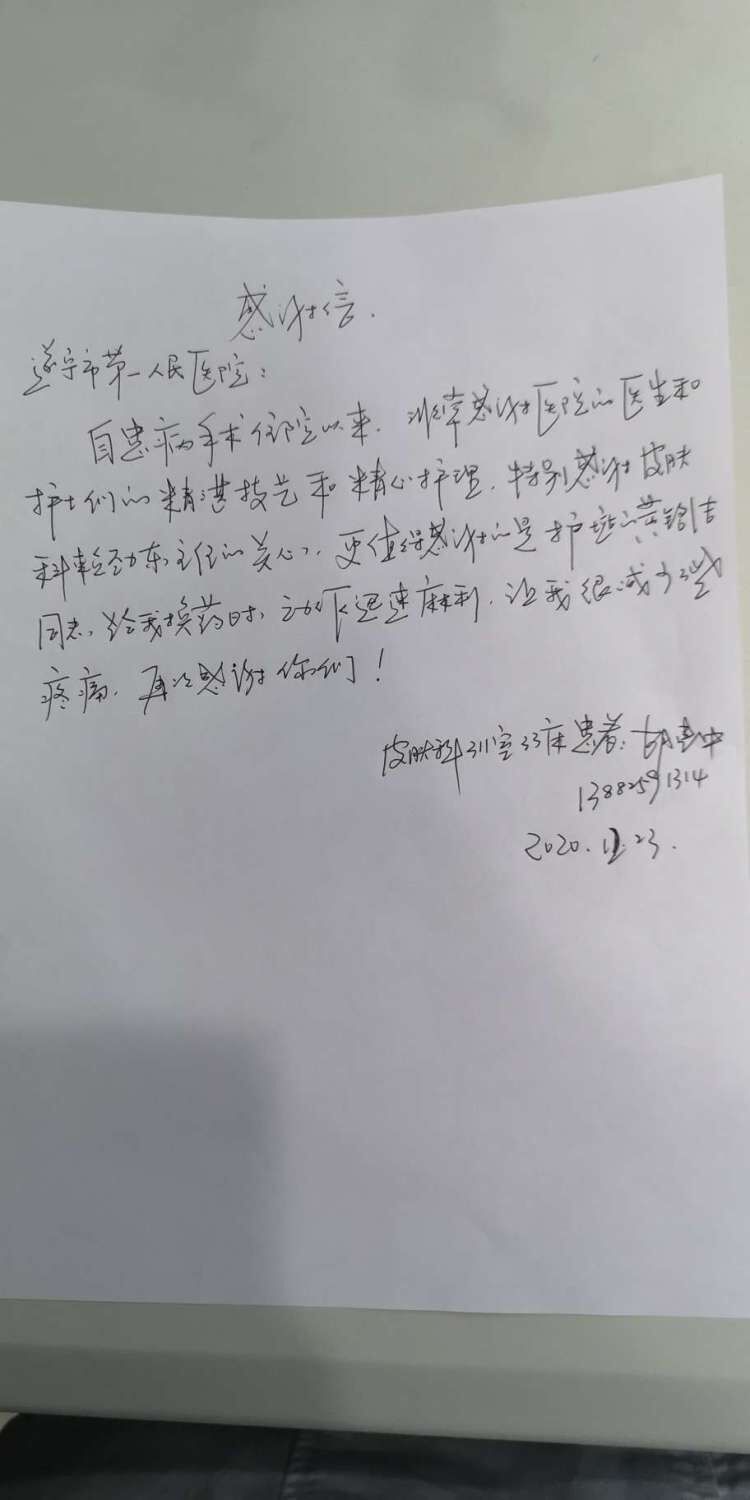 感谢信.
遂宁市第一人民医院:
自患病手术住院以来. 非常感谢医院的医生和
护士们的精湛技艺和精心护理. 特别感谢皮肤
科 劲东主任的关心, 更值得感谢的是护 的黄 洁
同志, 给我换药时, 迅速麻利. 让我很减少些
疼痛. 再次感谢你们!
皮肤科311室33床患者:
13882591314
2020.12.23.